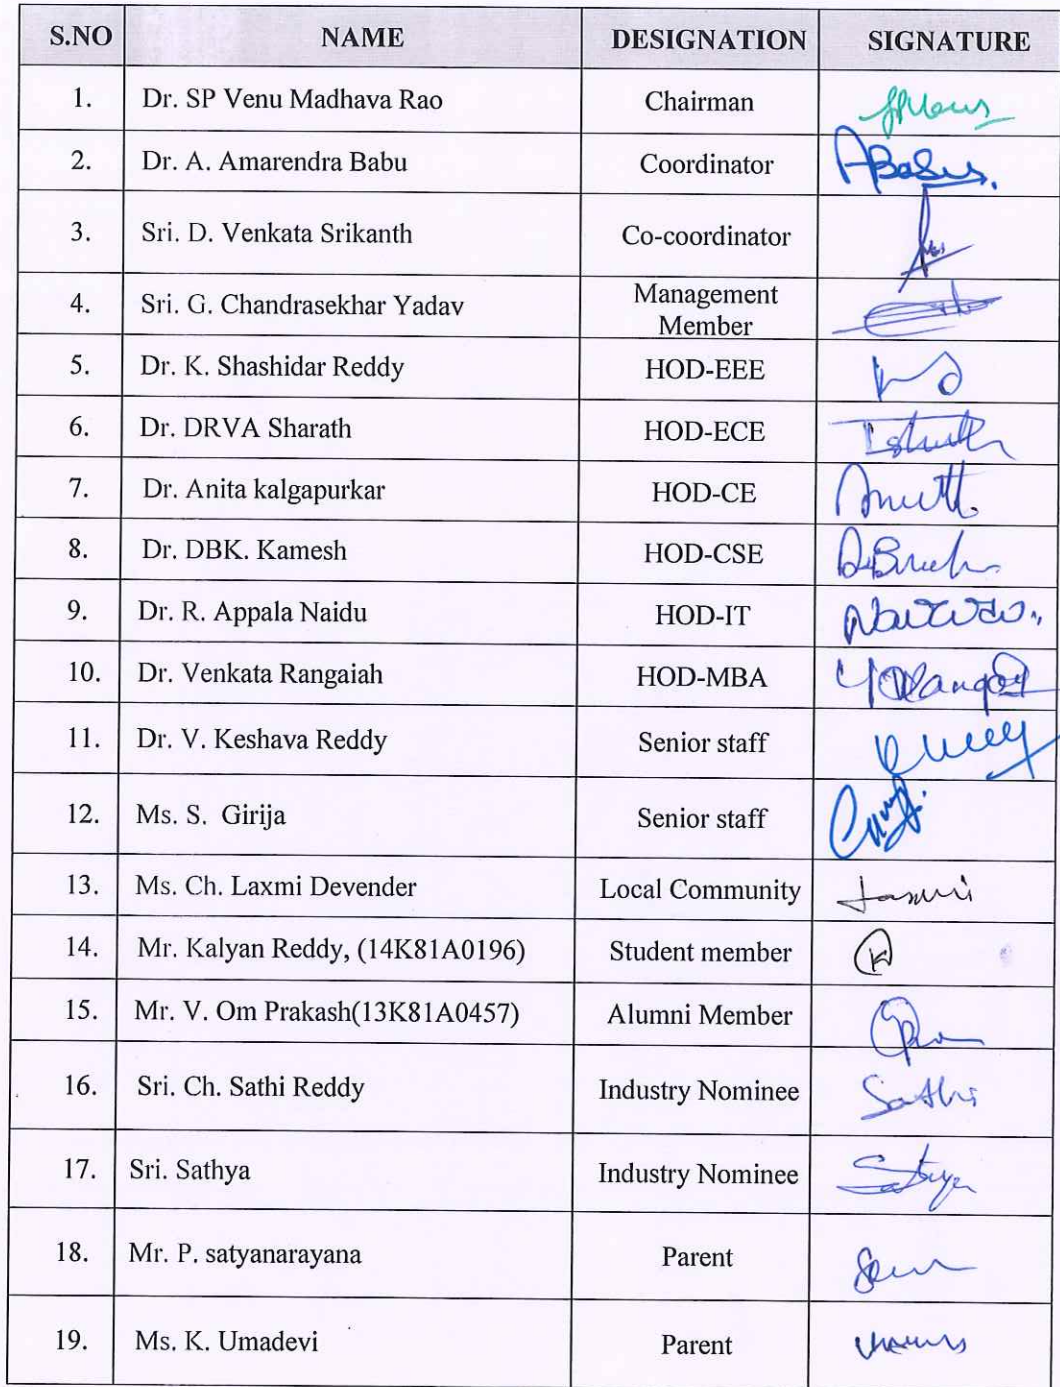 S.NO NAME DESIGNATION SIGNATURE
1. Dr. SP Venu Madhava Rao Chairman
2. Dr. A. Amarendra Babu Coordinator ABabu.
3. Sri. D. Venkata Srikanth Co-coordinator
4. Sri. G. Chandrasekhar Yadav Management
Member
5. Dr. K. Shashidar Reddy HOD-EEE
6. Dr. DRVA Sharath HOD-ECE
7. Dr. Anita kalgapurkar HOD-CE
8. Dr. DBK. Kamesh HOD-CSE
9. Dr. R. Appala Naidu HOD-IT
10. Dr. Venkata Rangaiah HOD-MBA
11. Dr. V. Keshava Reddy Senior staff
12. Ms. S. Girija Senior staff
13. Ms. Ch. Laxmi Devender Local Community
14. Mr. Kalyan Reddy, (14K81A0196) Student member K
15. Mr. V. Om Prakash(13K81A0457) Alumni Member
16. Sri. Ch. Sathi Reddy Industry Nominee Sathi
17. Sri. Sathya Industry Nominee
18. Mr. P. satyanarayana Parent
19. Ms. K. Umadevi Parent